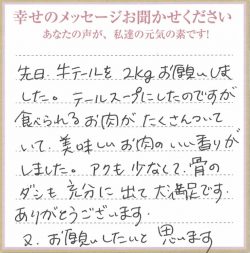 幸せのメッセージお聞かせください
あなたの声が、私達の元気の素です!
先日、牛テールを2kgお願いしま
した。テールスープにしたのですが
食べられるお肉がたくさんついて
いて、美味しいお肉のいい香りが
しました。アクも少なくて、骨の
ダシも充分に出て大満足です。
ありがとうございます。
又、お願いしたいと思います